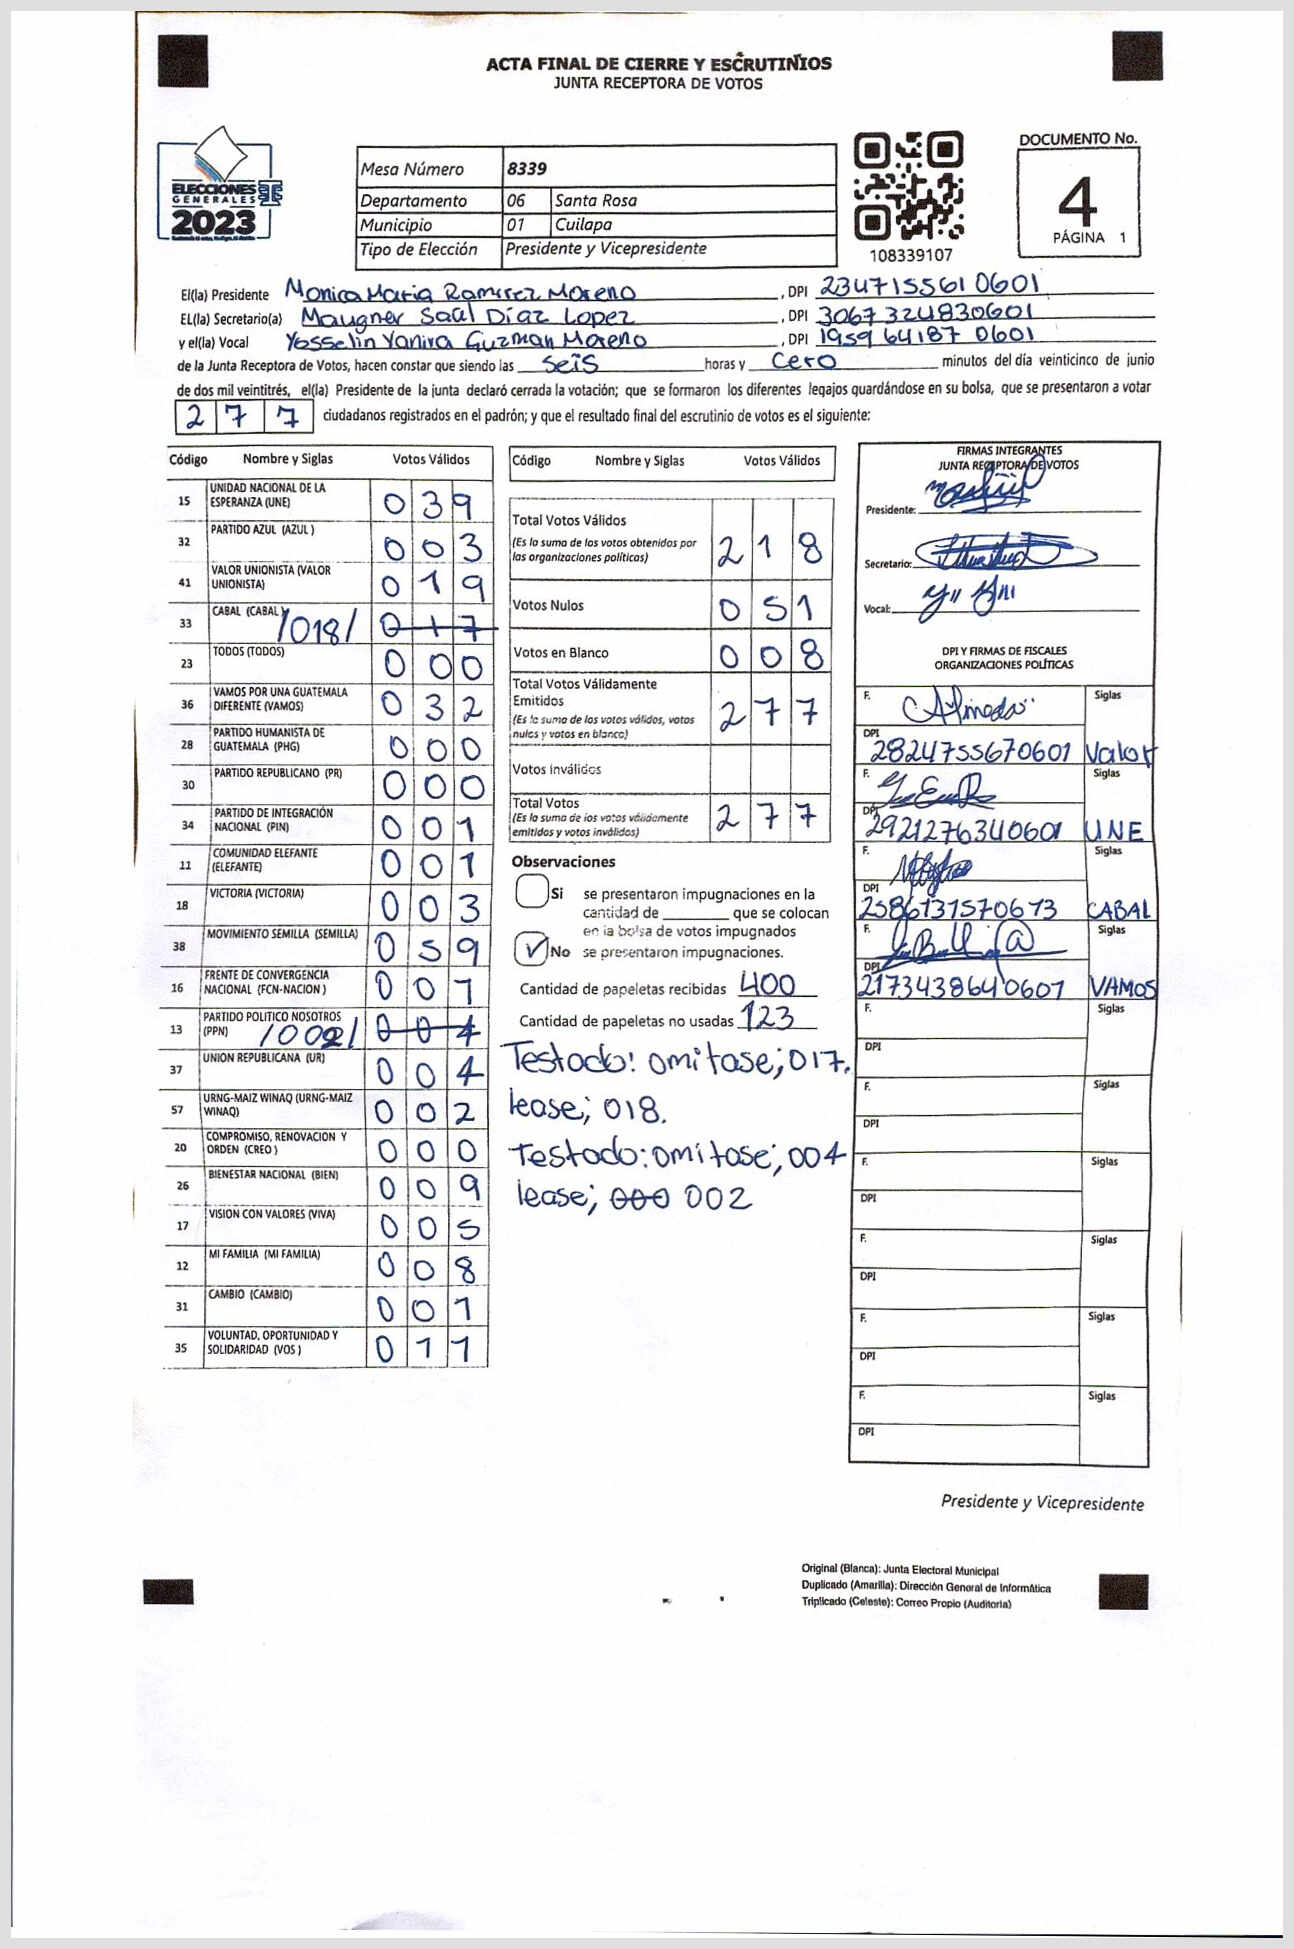 ACTA FINAL DE CIERRE Y ESCRUTINIOS
JUNTA RECEPTORA DE VOTOS
ELECCIONES
GENERALES
2023
Mesa Número 8339
Departamento 06 Santa Rosa
Municipio 01 Cuilapa
Tipo de Elección Presidente y Vicepresidente
108339107
DOCUMENTO No.
4
PÁGINA 1
El(la) Presidente Monica Maria Ramirez Moreno , DPI 2347155610601
EL(la) Secretario(a) Maugner Saúl Díaz Lopez , DPI 3067324830601
y el(la) Vocal Yosselin Yanira Guzman Moreno , DPI 1959641870601
de la Junta Receptora de Votos, hacen constar que siendo las seis horas y cero minutos del día veinticinco de junio
de dos mil veintitrés, el(la) Presidente de la junta declaró cerrada la votación; que se formaron los diferentes legajos guardándose en su bolsa, que se presentaron a votar
277 ciudadanos registrados en el padrón; y que el resultado final del escrutinio de votos es el siguiente:
Código Nombre y Siglas Votos Válidos
15 UNIDAD NACIONAL DE LA ESPERANZA (UNE) 039
32 PARTIDO AZUL (AZUL ) 003
41 VALOR UNIONISTA (VALOR UNIONISTA) 019
33 CABAL (CABAL) /018/ 017
23 TODOS (TODOS) 000
36 VAMOS POR UNA GUATEMALA DIFERENTE (VAMOS) 032
28 PARTIDO HUMANISTA DE GUATEMALA (PHG) 000
30 PARTIDO REPUBLICANO (PR) 000
34 PARTIDO DE INTEGRACIÓN NACIONAL (PIN) 001
11 COMUNIDAD ELEFANTE (ELEFANTE) 001
18 VICTORIA (VICTORIA) 003
38 MOVIMIENTO SEMILLA (SEMILLA) 059
16 FRENTE DE CONVERGENCIA NACIONAL (FCN-NACION ) 001
13 PARTIDO POLITICO NOSOTROS (PPN) /002/ 004
37 UNION REPUBLICANA (UR) 004
57 URNG-MAIZ WINAQ (URNG-MAIZ WINAQ) 002
20 COMPROMISO, RENOVACION Y ORDEN (CREO ) 000
26 BIENESTAR NACIONAL (BIEN) 009
17 VISION CON VALORES (VIVA) 005
12 MI FAMILIA (MI FAMILIA) 008
31 CAMBIO (CAMBIO) 001
35 VOLUNTAD, OPORTUNIDAD Y SOLIDARIDAD (VOS ) 011
Código Nombre y Siglas Votos Válidos
Total Votos Válidos
(Es la suma de los votos obtenidos por
las organizaciones políticas) 218
Votos Nulos 051
Votos en Blanco 008
Total Votos Válidamente
Emitidos
(Es la suma de los votos válidos, votos
nulos y votos en blanco) 277
Votos Inválidos
Total Votos
(Es la suma de los votos válidamente
emitidos y votos inválidos) 277
Observaciones
Si se presentaron impugnaciones en la
cantidad de ________ que se colocan
en la bolsa de votos impugnados
✓ No se presentaron impugnaciones.
Cantidad de papeletas recibidas 400
Cantidad de papeletas no usadas 123
Testado: omitase; 017.
lease; 018.
Testado: omitase; 004
lease; 000 002
FIRMAS INTEGRANTES
JUNTA RECEPTORA DE VOTOS
Presidente:
Secretario:
Vocal:
DPI Y FIRMAS DE FISCALES
ORGANIZACIONES POLÍTICAS
F. Siglas
DPI 2824755670601 Valor
F. Siglas
DPI 2921276340601 UNE
F. Siglas
DPI 2586131570613 CABAL
F. Siglas
DPI 2173438640601 VAMOS
F. Siglas
DPI
F. Siglas
DPI
F. Siglas
DPI
F. Siglas
DPI
F. Siglas
DPI
F. Siglas
DPI
Presidente y Vicepresidente
Original (Blanca): Junta Electoral Municipal
Duplicado (Amarilla): Dirección General de Informática
Triplicado (Celeste): Correo Propio (Auditoria)